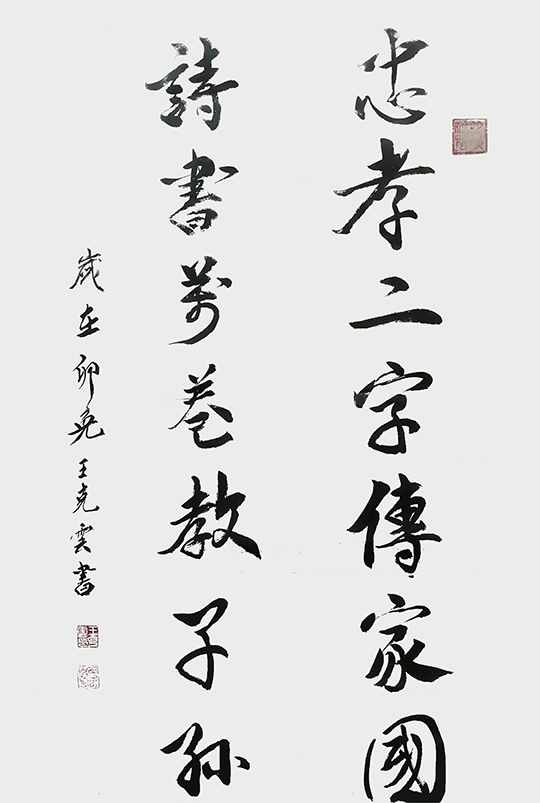 忠孝二字傳家國
詩書萬卷教子孫
歲在卯兔王克雲書